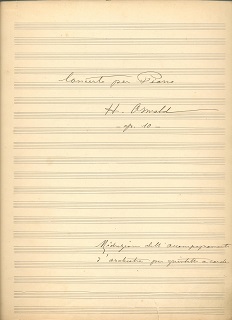 Concerto per Piano
H. Oswald
- op. 10 -
Riduzione dell'accompagnamento
d'orchestra per quintetto a corde